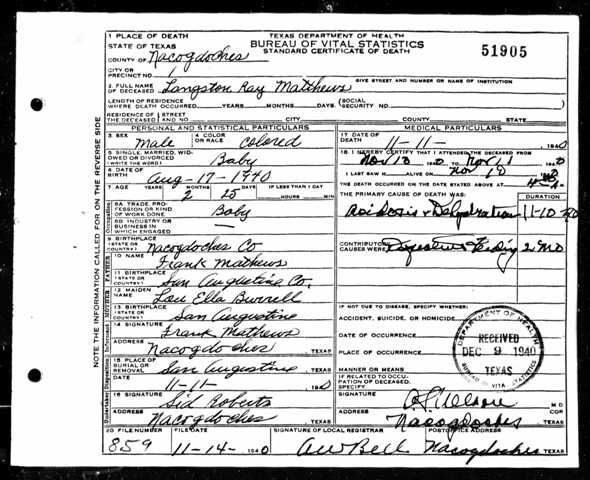 1 PLACE OF DEATH
STATE OF TEXAS
TEXAS DEPARTMENT OF HEALTH
BUREAU OF VITAL STATISTICS
STANDARD CERTIFICATE OF DEATH
51905
COUNTY OF Nacogdoches
CITY OR PRECINCT NO. 1
GIVE STREET AND NUMBER OR NAME OF INSTITUTION
2 FULL NAME OF DECEASED Langston Ray Matthews
LENGTH OF RESIDENCE WHERE DEATH OCCURRED YEARS MONTHS DAYS (SOCIAL SECURITY NO.
RESIDENCE OF THE DECEASED STREET AND NO. CITY COUNTY STATE
PERSONAL AND STATISTICAL PARTICULARS
3 SEX Male 4 COLOR OR RACE Colored
5 SINGLE, MARRIED, WIDOWED OR DIVORCED (WRITE THE WORD) Baby
6 DATE OF BIRTH Aug-17-1940
7 AGE YEARS MONTHS DAYS IF LESS THAN 1 DAY
2 25 HOURS MIN
8A TRADE PROFESSION OR KIND OF WORK DONE Baby
8B INDUSTRY OR BUSINESS IN WHICH ENGAGED —
9 BIRTHPLACE (STATE OR COUNTRY) Nacogdoches Co
FATHER
10 NAME Frank Mathews
11 BIRTHPLACE (STATE OR COUNTRY) San Augustine Co.
MOTHER
12 MAIDEN NAME Lou Ella Burrell
13 BIRTHPLACE (STATE OR COUNTRY) San Augustine
Informant
14 SIGNATURE Frank Mathews
ADDRESS Nacogdoches TEXAS
15 PLACE OF BURIAL OR REMOVAL San Augustine TEXAS
DATE 11-11- 1940
Undertaker
16 SIGNATURE Sid Roberts
ADDRESS Nacogdoches TEXAS
MEDICAL PARTICULARS
17 DATE OF DEATH 11-11- 1940
18 I HEREBY CERTIFY THAT I ATTENDED THE DECEASED FROM
Nov 10 1940 TO Nov 11 1940
I LAST SAW H ALIVE ON Nov 10
THE DEATH OCCURRED ON THE DATE STATED ABOVE AT
THE PRIMARY CAUSE OF DEATH WAS: DURATION
Acidosis & Dehydration 11-10-40
CONTRIBUTORY CAUSES WERE: Feeding 2 mo
IF NOT DUE TO DISEASE, SPECIFY WHETHER:
ACCIDENT, SUICIDE, OR HOMICIDE
DATE OF OCCURRENCE
PLACE OF OCCURRENCE
MANNER OR MEANS
IF RELATED TO OCCUPATION OF DECEASED, SPECIFY
DEPARTMENT OF HEALTH
RECEIVED
DEC 9 1940
TEXAS
BUREAU OF VITAL STATISTICS
SIGNATURE M D
ADDRESS Nacogdoches TEXAS
20 FILE NUMBER FILE DATE SIGNATURE OF LOCAL REGISTRAR POSTOFFICE ADDRESS
859 11-14- 1940 AW Bell Nacogdoches TEXAS
NOTE THE INFORMATION CALLED FOR ON THE REVERSE SIDE